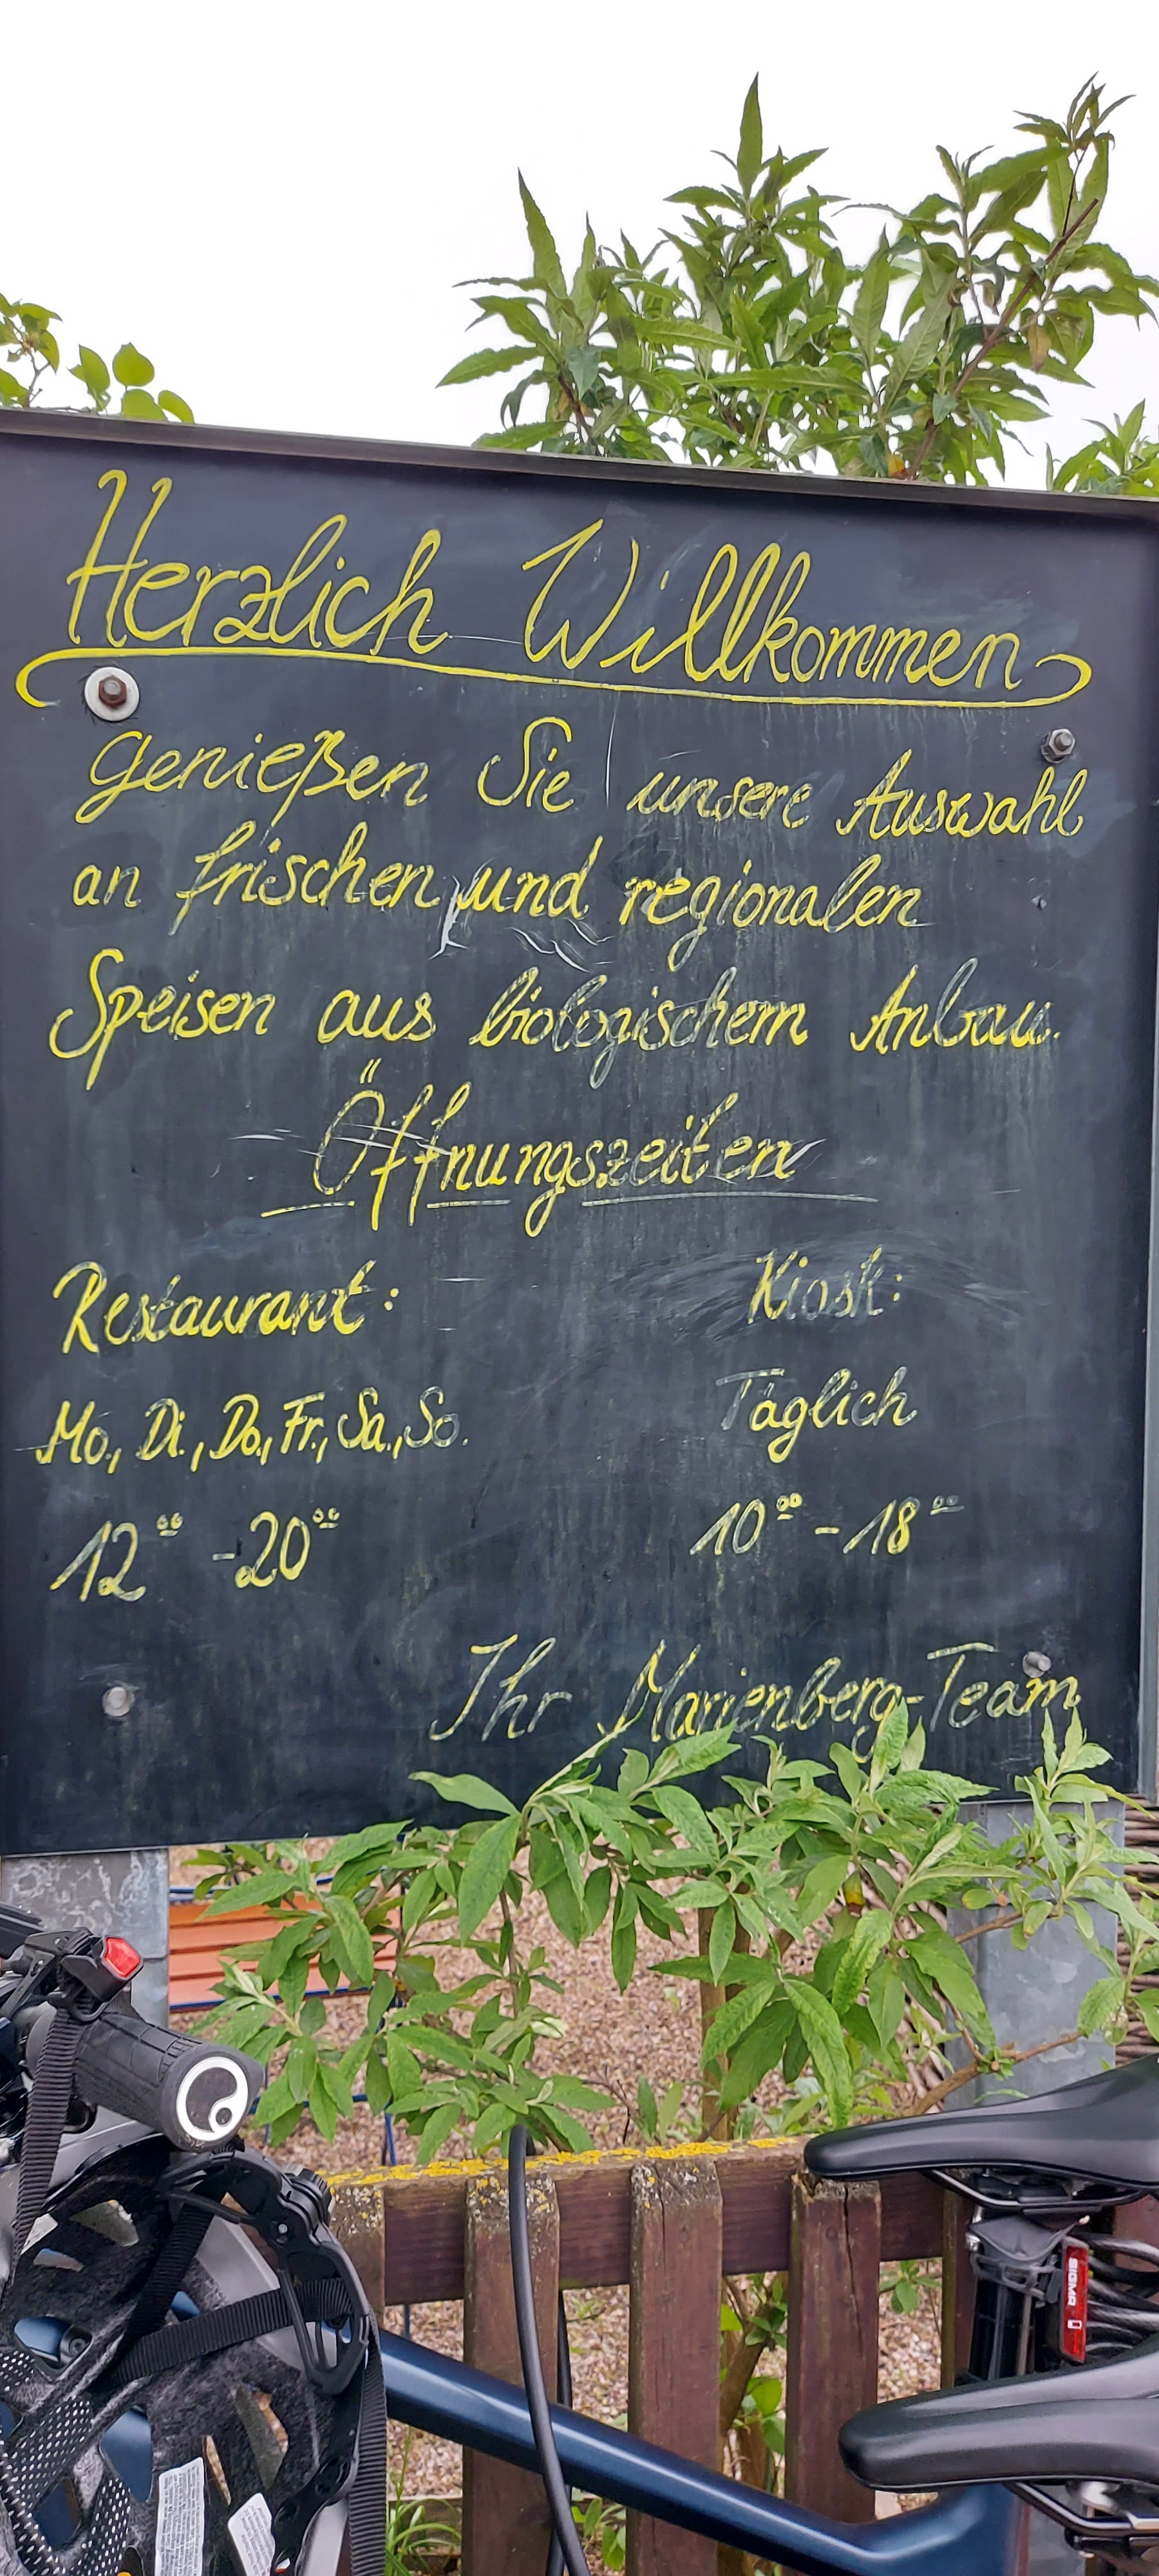 Herzlich Willkommen
genießen Sie unsere Auswahl
an frischen und regionalen
Speisen aus biologischem Anbau.
Öffnungszeiten
Restaurant:
Mo., Di., Do., Fr., Sa., So.
12⁰⁰ - 20⁰⁰
Kiosk:
Täglich
10⁰⁰ - 18⁰⁰
Ihr Marienberg-Team
SIGMA